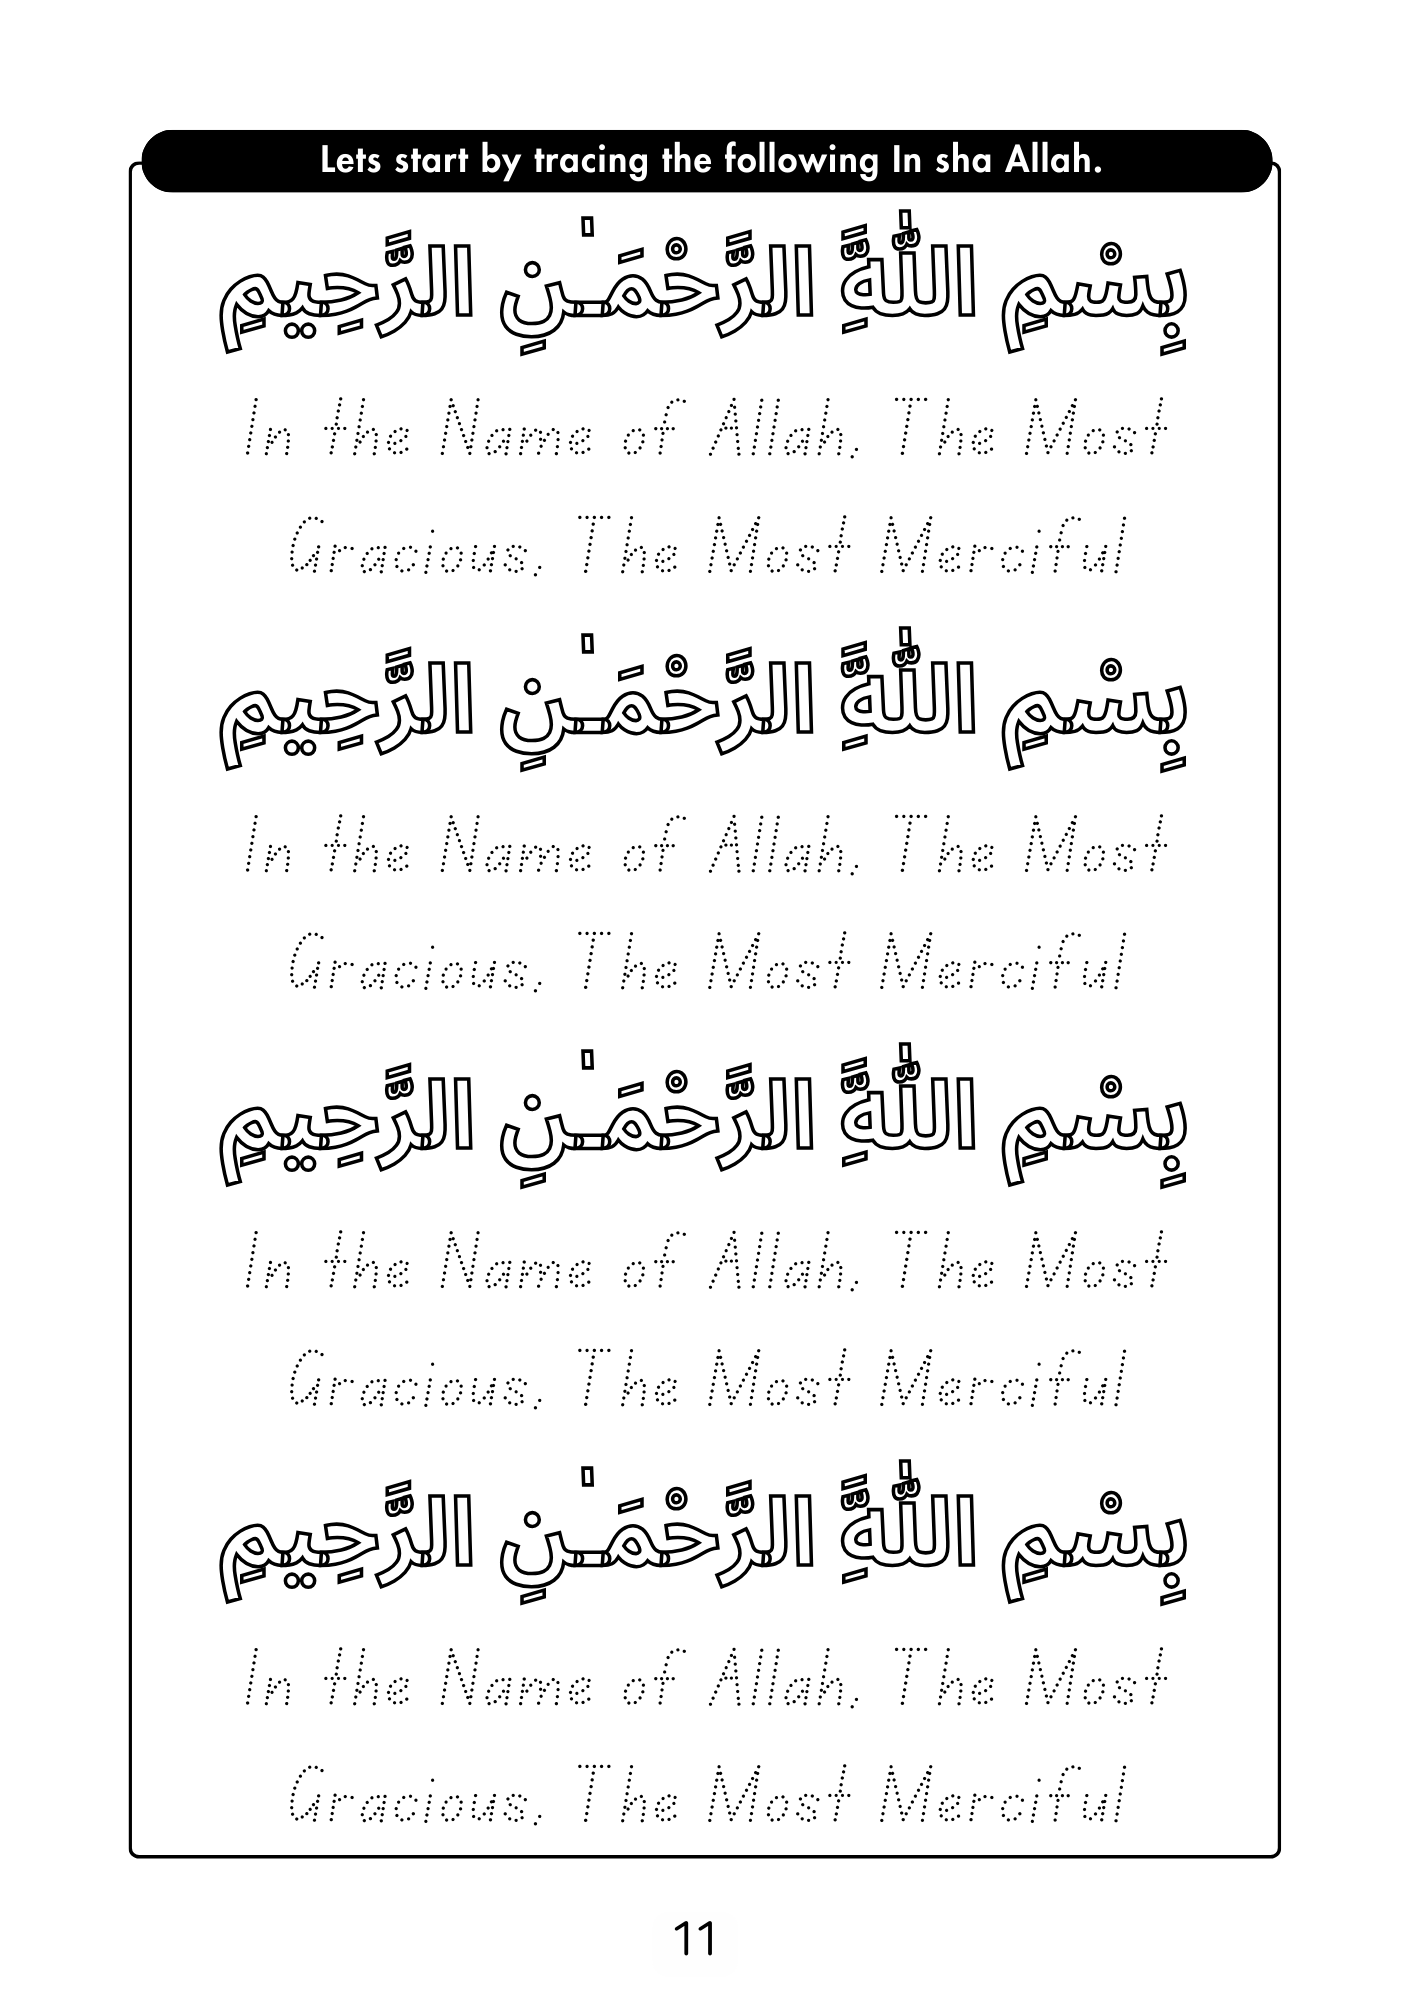 Lets start by tracing the following In sha Allah.
بِسْمِ اللَّٰهِ الرَّحْمَـٰنِ الرَّحِيمِ
In the Name of Allah, The Most
Gracious, The Most Merciful
بِسْمِ اللَّٰهِ الرَّحْمَـٰنِ الرَّحِيمِ
In the Name of Allah, The Most
Gracious, The Most Merciful
بِسْمِ اللَّٰهِ الرَّحْمَـٰنِ الرَّحِيمِ
In the Name of Allah, The Most
Gracious, The Most Merciful
بِسْمِ اللَّٰهِ الرَّحْمَـٰنِ الرَّحِيمِ
In the Name of Allah, The Most
Gracious, The Most Merciful
11